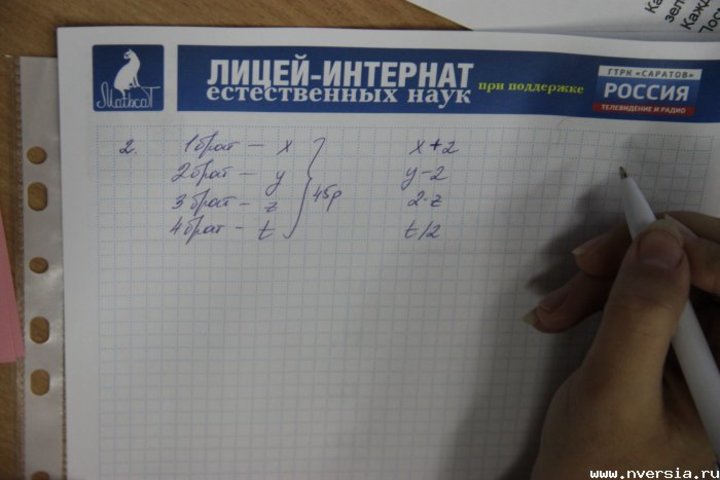 Ка
зел
Кажд
Пос
MathcaT
ЛИЦЕЙ-ИНТЕРНАТ
естественных наук
при поддержке
ГТРК «САРАТОВ»
РОССИЯ
ТЕЛЕВИДЕНИЕ И РАДИО
2. 1 брат — x x+2
2 брат — y y-2
3 брат — z } 45р 2·z
4 брат - t t/2
www.nversia.ru